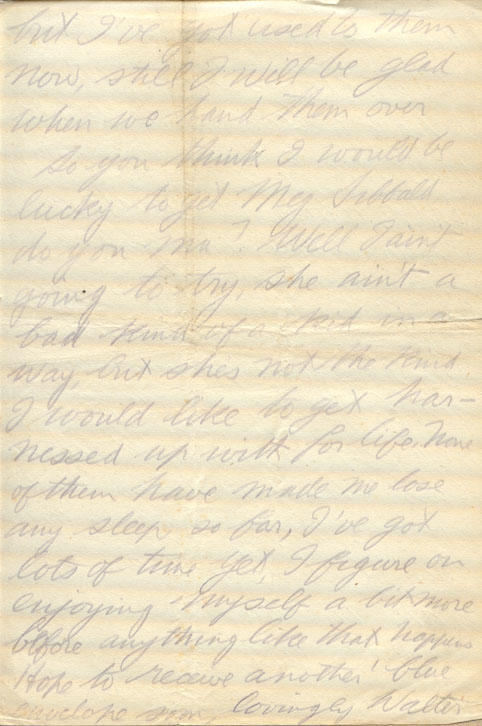 but I've got used to them
now, still I will be glad
when we hand them over
So you think I would be
lucky to get Meg Sibbald
do you ma? Well I ain't
going to try, she ain't a
bad kind of a kid in a
way, but shes not the kind
I would like to get har-
nessed up with for life. None
of them have made me lose
any sleep so far, I've got
lots of time yet, I figure on
enjoying myself a bit more
before anything like that happens
Hope to receive another blue
envelope soon, lovingly Walter